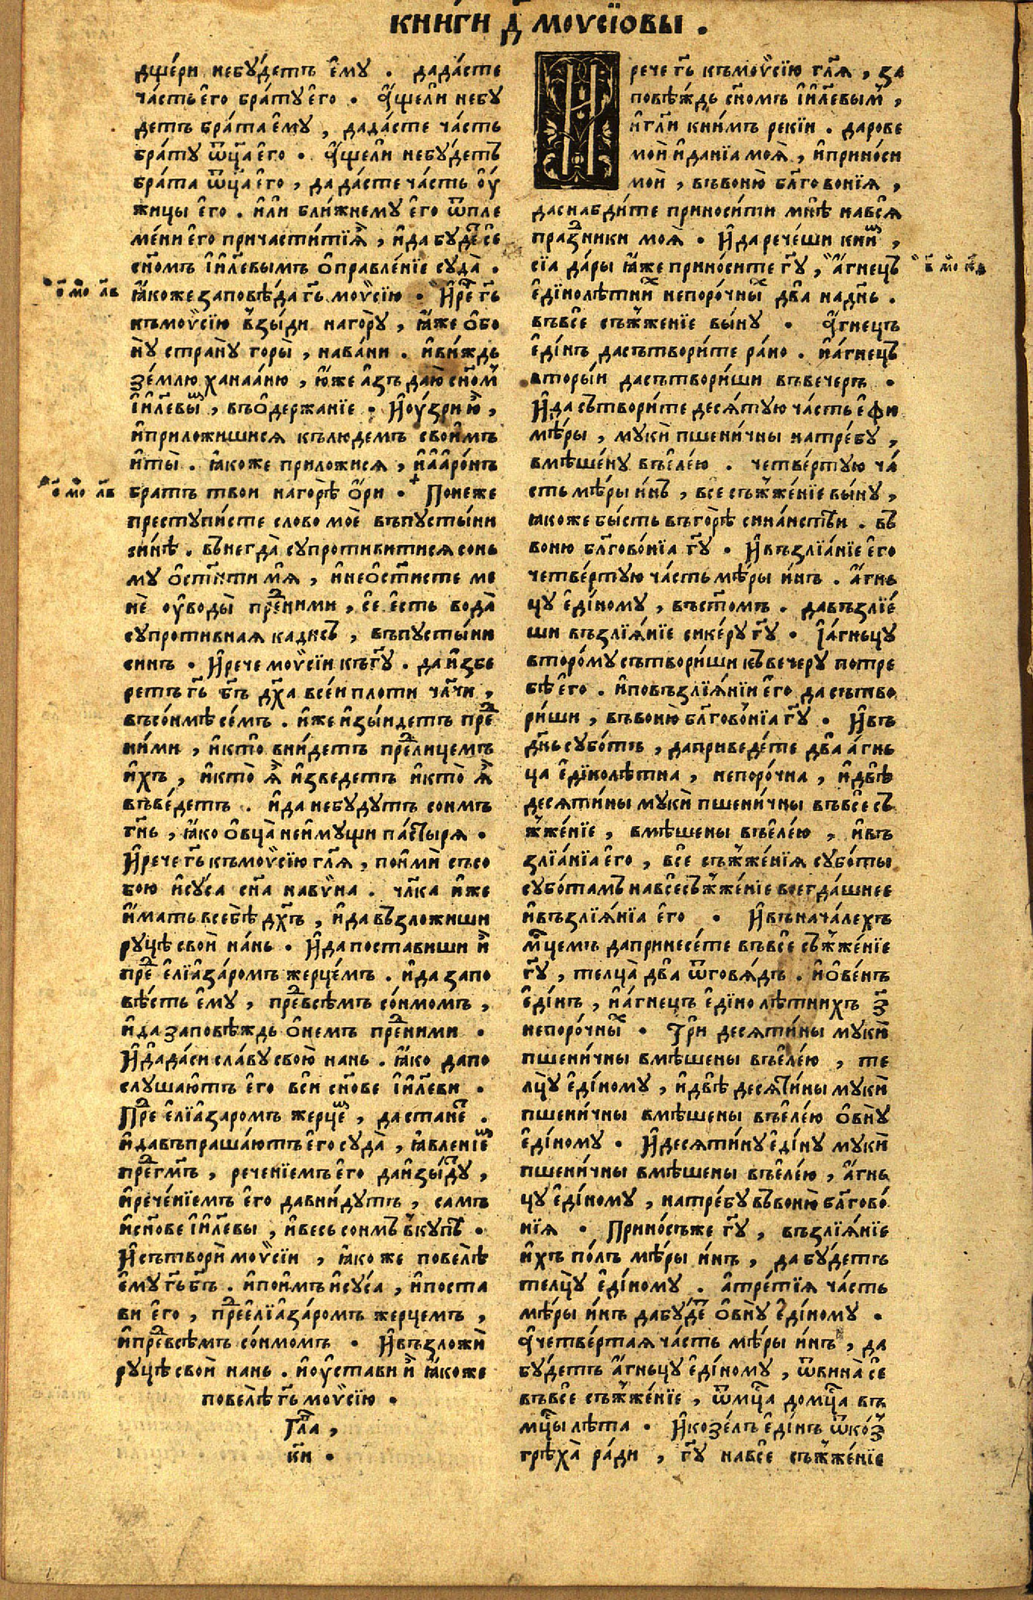 КНИ́ГИ Д҃ МОУСІ́ОВЫ .
дще́ри небу́детъ є҆му̀ . дада́сте
ча́сть є҆го̀ бра́ту є҆го̀ . а҆́ще ли небу́
детъ бра́та є҆му̀ , дада́сте ча́сть
бра́ту ѿц҃а є҆го̀ . а҆́ще ли небу́детъ
бра́та ѿц҃а є҆го̀ , дада́сте ча́сть оу҆́
жицы є҆го̀ . и҆лѝ бли́жнему є҆го̀ ѿпле
мени є҆го̀ причасти́ти ѧ҆̀ , и҆да бу́детⷭ҇е
сн҃омъ і҆и҃левымъ ѻ҆правле́нїе суда̀ .
ꙗ҆́коже заповѣ́да гь҃ мои҆сі́ю . И҆ре́че гь҃
къмои҆сі́ю взы́ди наго́ру , ꙗ҆́же ѻ҆бо
ну́ страну̀ горы̀ , нава́ни . и҆ви́ждь
зе́млю ханаа́ню , ю҆́же а҆́зъ даю̀ сн҃омъ
і҆и҃левымъ , въѻ҆держа́нїе . И҆оу҆́зриши ю҆̀ ,
и҆приложи́шися къ лю́демъ свои҆́мъ
и҆ты̀ . ꙗ҆́коже приложи́ся , и҆а҆аро́нъ
бра́тъ тво́и наго́рѣ ѻ҆́ри . Поне́же
преступи́сте сло́во моѐ въпусты́ни
си́нѣ . вънегда̀ супроти́витися со́нь
му ѻ҆ст҃и́ти мѧ̀ , и҆неѻ҆ст҃и́сте ме
нѐ оу҆воды̀ преⷣни́ми , сѐ є҆́сть вода̀
супроти́вная ка́дисъ , въпусты́ни
синъ . И҆рече мои҆сі́и къ гу҃ . да и҆збе
ре́тъ гь҃ бг҃ъ дх҃а все́и пло́ти чл҃чи ,
въсо́нмѣ се́мъ . и҆́же и҆зы́идетъ преⷣ
ни́ми , и҆кто̀ вни́детъ преⷣлице́мъ
и҆́хъ , и҆кто̀ ѧ҆̀ и҆зведе́тъ и҆кто̀ ѧ҆̀
въведе́тъ . и҆да небу́дутъ со́нмъ
гн҃ь , ꙗ҆́ко ѻ҆́вца неи҆му́щи па́стыря .
И҆рече гь҃ къмои҆сі́ю гл҃я , пои҆мѝ съсо
бо́ю и҆су́са сн҃а нави́на . чл҃ка и҆́же
и҆́мать всебѣ̀ дх҃ъ , и҆да възложи́ши
ру́цѣ свои҆̀ на́нь . И҆да поста́виши и҆̀
преⷣ є҆лїа҆заромъ жерце́мъ . и҆да запо
вѣ́сть є҆му̀ , преⷣвсѣ́мъ со́нмомъ ,
и҆да заповѣ́ждь ѻ҆не́мъ преⷣни́ми .
И҆да да́си сла́ву свою̀ на́нь . ꙗ҆́ко дапо
слу́шаютъ є҆го̀ всѝ сн҃ове і҆и҃леви .
Преⷣ є҆лїа҆заромъ жерце́мъ , да ста́нетъ .
и҆давъпраша́ютъ є҆го̀ суда̀ , ꙗ҆вле́нїемъ
преⷣгм҃ъ , рече́нїемъ є҆го̀ даи҆зы́дутъ ,
и҆рече́нїемъ є҆го̀ давни́дутъ , са́мъ
и҆сн҃ове і҆и҃левы , и҆ве́сь со́нмъ вку́пѣ .
И҆сътворѝ мои҆сі́и , ꙗ҆́коже повелѣ̀
є҆му̀ гь҃ бг҃ъ . и҆пои҆́мъ и҆су́са , и҆поста
ви є҆го̀ , преⷣє҆лїа҆заромъ жерцемъ ,
и҆преⷣвсѣ́мъ со́нмомъ . И҆възложѝ
ру́цѣ свои҆̀ на́нь . и҆оу҆ста́ви и҆̀ ꙗ҆́коже
повелѣ̀ гь҃ мои҆сі́ю .
Гла҃ ,
к҃и .
И҆рече гь҃ къмои҆сі́ю гл҃я , за
повѣ́ждь сн҃омъ і҆и҃левымъ ,
и҆гл҃и кни́мъ реки́и . да́рове
мои҆̀ и҆да́нїа моя҆̀ , и҆прино́си
мои҆̀ , въвоню̀ бл҃гово́нїя ,
даснабди́те приноси́ти мнѣ̀ нався҆̀
пра́зⷣники моя҆̀ . И҆да рече́ши кни́мъ ,
сїа да́ры ꙗ҆́же прино́сите гу҃ , а҆́гнецъ
є҆дінолѣ́тныхъ непоро́чныхъ два̀ на́днь .
въвсѐ съжже́нїе вы́ну . а҆́гнецъ
є҆ді́нъ дасътвори́те ра́но . и҆а҆́гнецъ
вторы́и дасътвори́ши въвечеръ .
И҆да сътвори́те деся́тую ча́сть є҆фи
мѣ́ры , мукѝ пшени́чны натре́бу ,
вмѣше́ну въє҆ле́ю . четве́ртую ча́
сть мѣ́ры и҆́нъ , всѐ съжже́нїе вы́ну ,
ꙗ҆коже бы́сть въго́рѣ сина́истѣи . въ
воню бл҃гово́нїа гу҃ . И҆възлїа́нїе є҆го̀
четве́ртую ча́сть мѣ́ры и҆́нъ . а҆́гнь
цу є҆ді́ному , въст҃омъ . давъзлїе́
ши възлїя́нїе сике́ру гу҃ . И҆а҆́гньцу
второ́му сътвори́ши къвечеру потре
бѣ̀ є҆го̀ . и҆повъзлїя́нїи є҆го̀ да сътво
ри́ши , въвоню̀ бл҃гово́нїа гу҃ . И҆въ
дн҃ь субо́тъ , даприведе́те два̀ а҆́гнь
ца є҆дінолѣ́тна , непоро́чна , и҆двѣ̀
десяти́ны мукѝ пшени́чны въвсѐ съ
жже́нїе , вмѣшены въє҆ле́ю , и҆въ
злїа́нїа є҆го̀ , всѐ съжже́нїя субо́ты
субо́тамъ навсѐ съжже́нїе всегда́шнее
и҆възлїя́нїа є҆го̀ . И҆въ нача́лехъ
мц҃емъ дапринесе́те въвсѐ съжже́нїе
гу҃ , телца̀ два̀ ѿговя́дъ . и҆ѻ҆ве́нъ
є҆ді́нъ , и҆а҆́гнецъ є҆дінолѣтнихъ з҃
непоро́чныхъ . Трѝ десяти́ны мукѝ
пшени́чны вмѣ́шены въє҆ле́ю , те
лцу̀ є҆ді́ному , и҆двѣ̀ десяти́ны мукѝ
пшени́чны вмѣ́шены въє҆ле́ю ѻ҆вну̀
є҆ді́ному . И҆десяти́ну є҆ді́ну мукѝ
пшени́чны вмѣ́шены въє҆ле́ю , а҆́гнь
цу є҆ді́ному , натре́бу въвоню̀ бл҃гово́
нїя . Прино́съже гу҃ , възлїя́нїе
и҆́хъ по́лъ мѣ́ры и҆́нъ , да бу́детъ
телцу̀ є҆ді́ному . а҆тре́тїя ча́сть
мѣ́ры и҆́нъ дабу́детъ ѻ҆вну̀ є҆ді́ному .
а҆четве́ртая ча́сть мѣ́ры и҆́нъ , да
бу́детъ а҆́гньцу є҆ді́ному , ѿвина̀ сѐ
въвсѐ съжже́нїе , ѿмц҃а домц҃а въ
мц҃ы лѣ́та . И҆козе́лъ є҆ді́нъ ѿко́зъ
грѣха̀ ра́ди , гу҃ навсѐ съжже́нїе